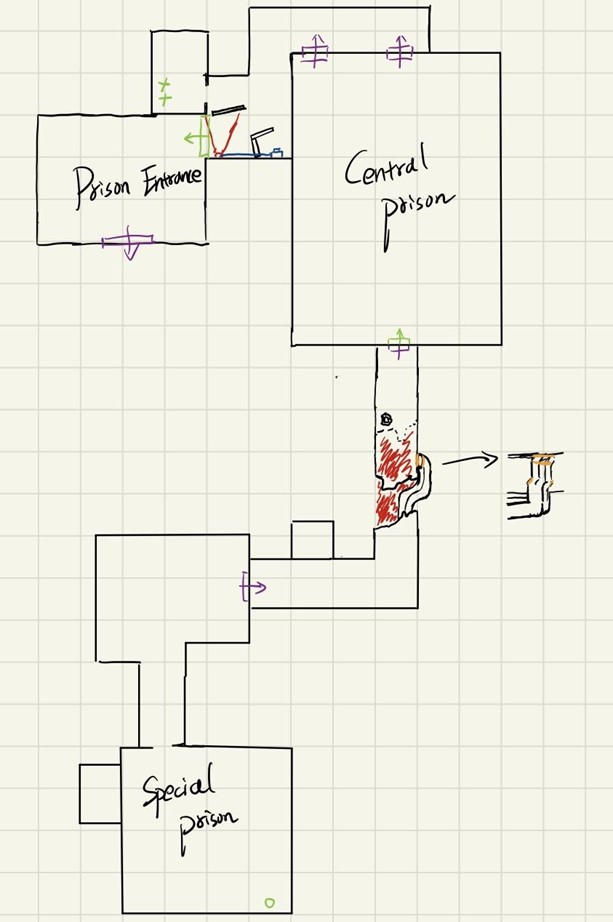 Prison Entrance
Central
prison
Special
prison